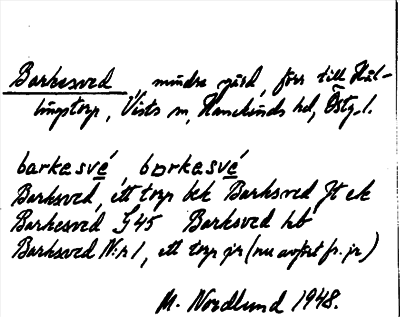 Barkesved, mindre gård, förr till Häl-
lingstorp, Vists sn, Hanekinds hd, Östg. l.
barkasvé, barkasvé
Barksved, ett torp bek Barksved Jt ek
Barkesved G 45 Barksved hb
Barksved N:r 1, ett torp gjr (nu avfört fr. jr)
M. Nordlund 1948.